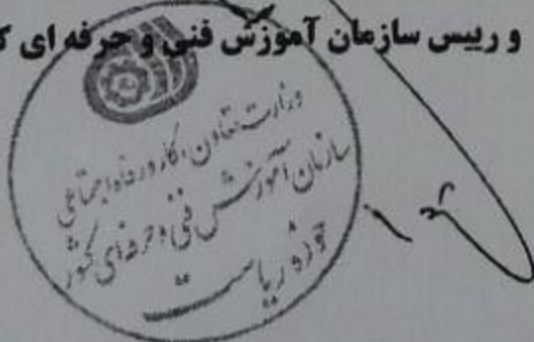 و رییس سازمان آموزش فنی و حرفه ای ک
وزارت تعاون، کار و رفاه اجتماعی
سازمان آموزش فنی و حرفه‌ای کشور
حوزه ریاست